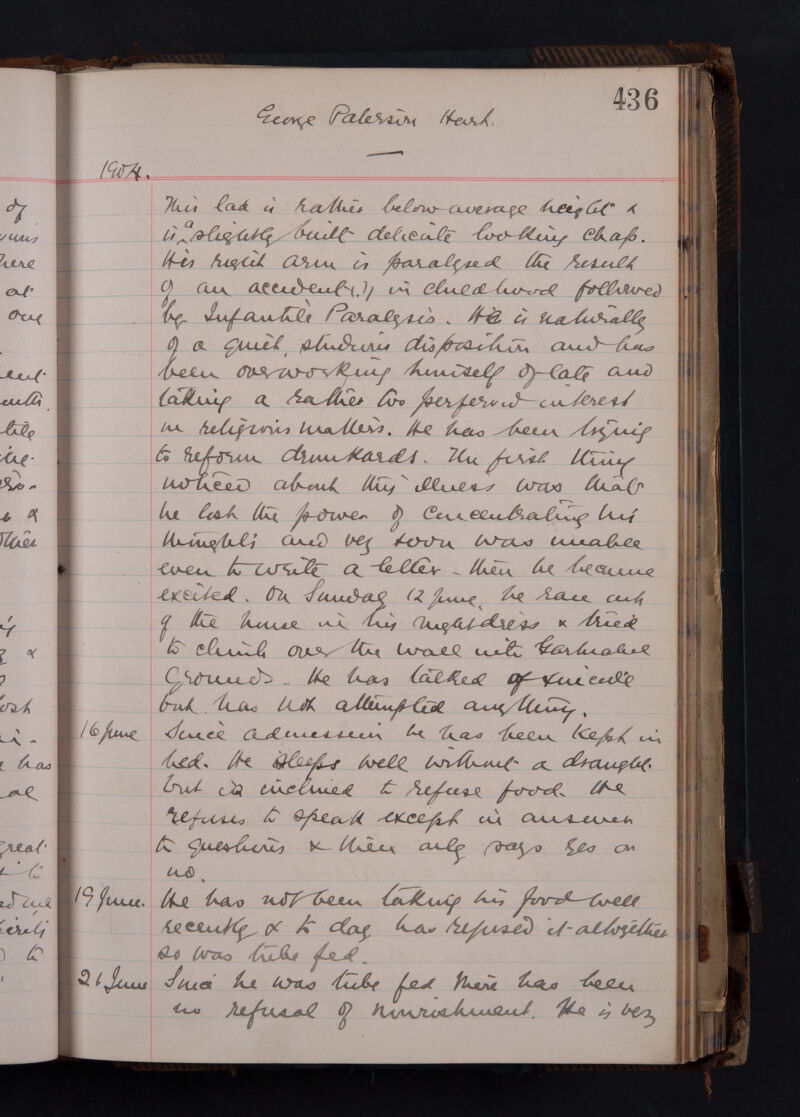 436
George Paterson
1904.
This lad is rather below average height &
is a slightly built delicate looking chap.
His right arm is paralysed the result
of an accident (?) in childhood followed
by Infantile Paralysis. He is naturally
of a quiet, studious disposition and has
been overworking himself of late and
taking a rather too perfervid interest
in religious matters. He has been trying
to reform drunkards. The first thing
noticed about this illness was that
he lost the power of concentrating his
thoughts and very soon was unable
even to write a letter - then he became
excited. On Sunday 12 June, he ran out
of the house in his nightdress & tried
to climb over the wall into Gartnavel
Grounds. He has talked of suicide
but has not attempted anything.
16 June Since admission he has been kept in
bed. He sleeps well without a draught
but is inclined to refuse food. He
refuses to speak except in answer
to questions & then only says yes or
no.
19 June. He has not been taking his food well
recently & to day has refused it altogether
so was tube fed.
21 June Since he was tube fed there has been
no refusal of nourishment. He is very